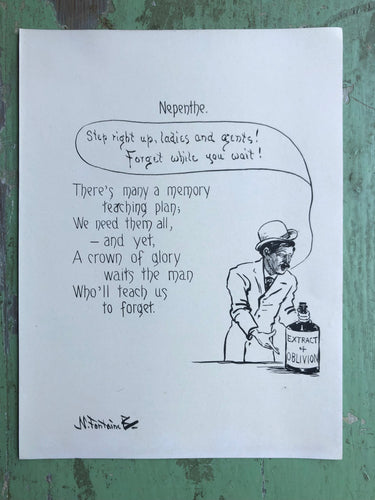 Nepenthe.
Step right up, ladies and gents!
Forget while you wait!
There's many a memory
teaching plan;
We need them all,
— and yet,
A crown of glory
waits the man
Who'll teach us
to forget.
EXTRACT
of
OBLIVION
N. Fontaine B